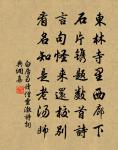 東林寺里西廊下
石片鐫題數首詩
言句怪來還校別
看名知是老湯師
僧靈澈詩
典網